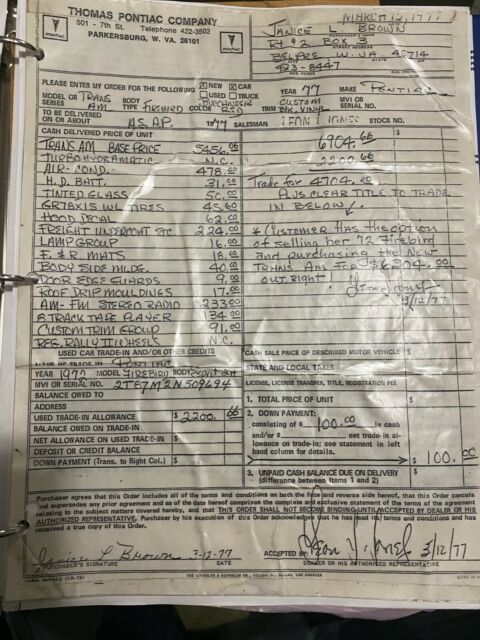 THOMAS PONTIAC COMPANY
501 - 7th St. Telephone 422-3502
PARKERSBURG, W. VA. 26101
PONTIAC
PONTIAC
MARCH 12, 1977
JANICE L BROWN
Rt #2 BOX 3
BELPRE W. VA. 45714
423-8447
PLEASE ENTER MY ORDER FOR THE FOLLOWING NEW CAR YEAR 77 MAKE PONTIAC
USED TRUCK
MODEL OR SERIES TRANS AM BODY TYPE FIREBIRD COLOR BUCCANEER RED TRIM CUSTOM BLK. VINYL MVI OR SERIAL NO.
TO BE DELIVERED ON OR ABOUT A.S.A.P. 1977 SALESMAN LEON J JONES STOCK NO.
CASH DELIVERED PRICE OF UNIT $ $
TRANS AM BASE PRICE 5456.00 6904.66
TURBO HYDRAMATIC N.C. 2200.66
AIR-COND. 478.00 Trade for 4704.00
H.D. BATT. 31.00 PLUS CLEAR TITLE TO TRADE
TINTED GLASS 50.00 IN BELOW
GR78X15 W.L. TIRES 45.60
HOOD DECAL 62.00
FREIGHT UNDERCOAT ETC. 224.00 * CUSTOMER Has the option
LAMP GROUP 16.00 of selling her 72 Firebird
F. & R. MATS 18.00 and purchasing the New
BODY SIDE MLDG. 40.00 TRANS AM FOR $6804.00
DOOR EDGE GUARDS 9.00 out right!!
ROOF DRIP MOULDINGS 17.00
AM-FM STEREO RADIO 233.00 3/12/77
8 TRACK TAPE PLAYER 134.00
CUSTOM TRIM GROUP 91.00
REG. RALLY II WHEELS N.C.
USED CAR TRADE-IN AND/OR OTHER CREDITS CASH SALE PRICE OF DESCRIBED MOTOR VEHICLE $
NAME OF TRADE-IN PONTIAC STATE AND LOCAL TAXES
YEAR 1972 MODEL FIREBIRD BODY
MVI OR SERIAL NO. 2T87M2N509694 LICENSE, LICENSE TRANSFER, TITLE, REGISTRATION FEE
BALANCE OWED TO 1. TOTAL PRICE OF UNIT $
ADDRESS 2. DOWN PAYMENT:
USED TRADE-IN ALLOWANCE $ 2200.66 consisting of $ 100.00 in cash
BALANCE OWED ON TRADE-IN $ and/or $ net trade-in al-
NET ALLOWANCE ON USED TRADE-IN $ lowance on trade-in; see statement in left
DEPOSIT OR CREDIT BALANCE $ hand column for details.
DOWN PAYMENT (Trans. to Right Col.) $ $ 100.00
3. UNPAID CASH BALANCE DUE ON DELIVERY
(difference between Items 1 and 2) $
Purchaser agrees that this Order includes all of the terms and conditions on both the face and reverse side hereof, that this Order cancels
and supersedes any prior agreement and as of the date hereof comprises the complete and exclusive statement of the terms of the agreement
relating to the subject matters covered hereby, and that THIS ORDER SHALL NOT BECOME BINDING UNTIL ACCEPTED BY DEALER OR HIS
AUTHORIZED REPRESENTATIVE. Purchaser by his execution of this Order acknowledges that he has read its terms and conditions and has
received a true copy of this Order.
Janice L Brown 3-12-77 ACCEPTED BY: Leon J. Jones 3/12/77
PURCHASER'S SIGNATURE DATE DEALER OR HIS AUTHORIZED REPRESENTATIVE